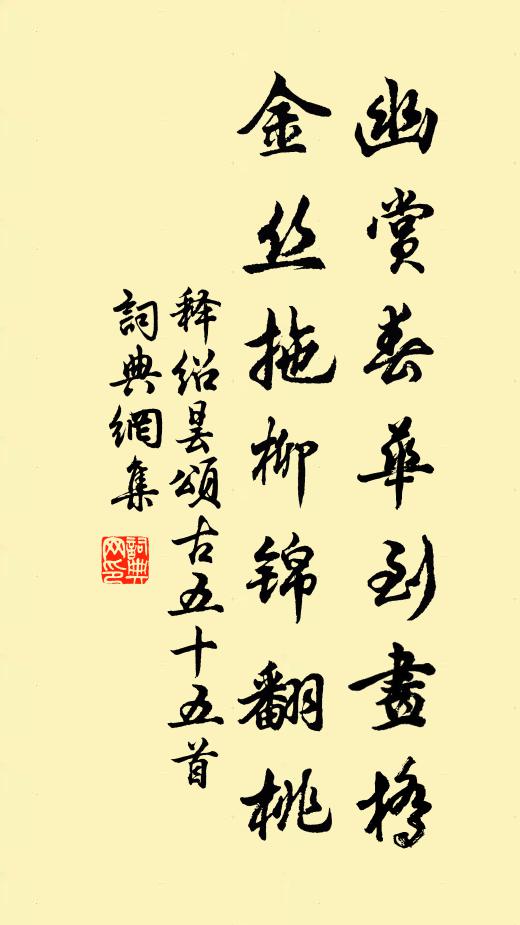 幽賞春華到畫橋
金丝拖柳锦翻桃
释绍昙頌古五十五首
詞典網集
詞典网印